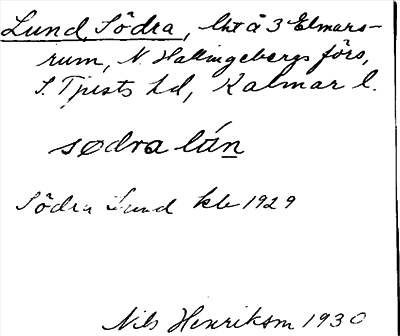 Lund, Södra, lht å 3 Elmars-
rum, N. Hallingebergs förs,
S. Tjusts hd, Kalmar l.
sødra lán
Södra Lund kbr 1929
Nils Henrikson 1930